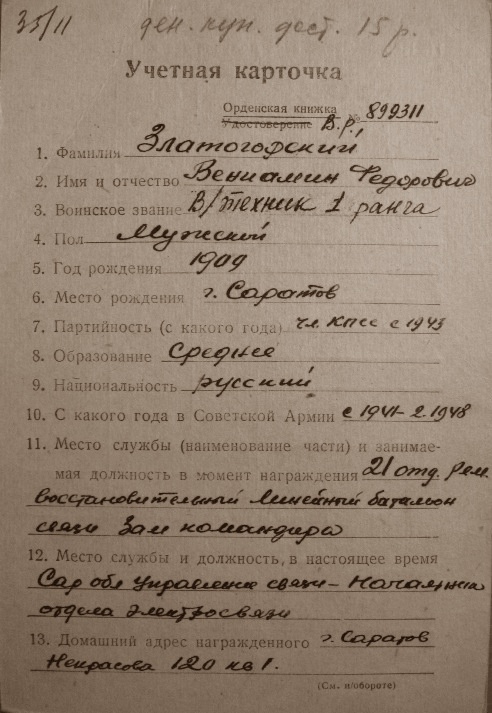 35/11 ден. куп. дост. 15 р.
Учетная карточка
Орденская книжка
Удостоверение № В.Р. 899311
1. Фамилия Златогорский
2. Имя и отчество Вениамин Федорович
3. Воинское звание В/техник 1 ранга
4. Пол Мужской
5. Год рождения 1909
6. Место рождения г. Саратов
7. Партийность (с какого года) чл. КПСС с 1943
8. Образование Среднее
9. Национальность русский
10. С какого года в Советской Армии с 1941-2.1948
11. Место службы (наименование части) и занимае-
мая должность в момент награждения 21 отд. рем.
восстановительный Линейный батальон
связи Зам командира
12. Место службы и должность, в настоящее время
Сар обл управление связи - Начальник
отдела электросвязи
13. Домашний адрес награжденного г. Саратов
Некрасова 120 кв 1.
(См. н/обороте)